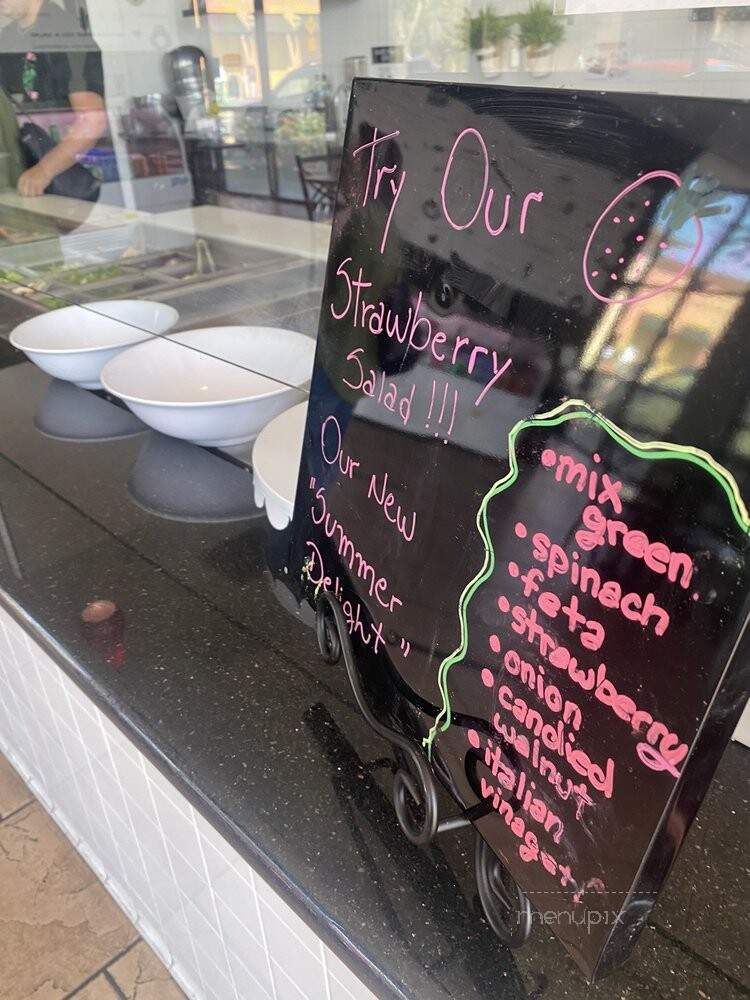 Try Our
Strawberry
Salad !!!
Our New
"Summer
Delight"
• mix
green
• spinach
• feta
• strawberry
• onion
• candied
walnut
• italian
menupix